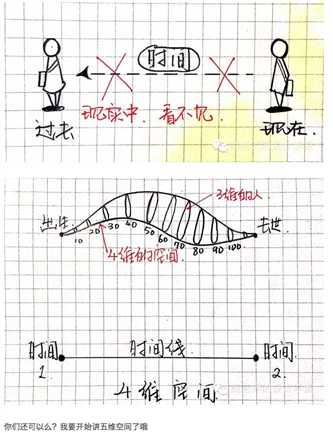 时间
现实中，看不见.
过去
现在.
3维的人
出生.
去世.
10 20 30 40 50 60 70 80 90 100
4维的空间
时间 时间线 时间
1. 2.
4维空间
你们还可以么？我要开始讲五维空间了哦